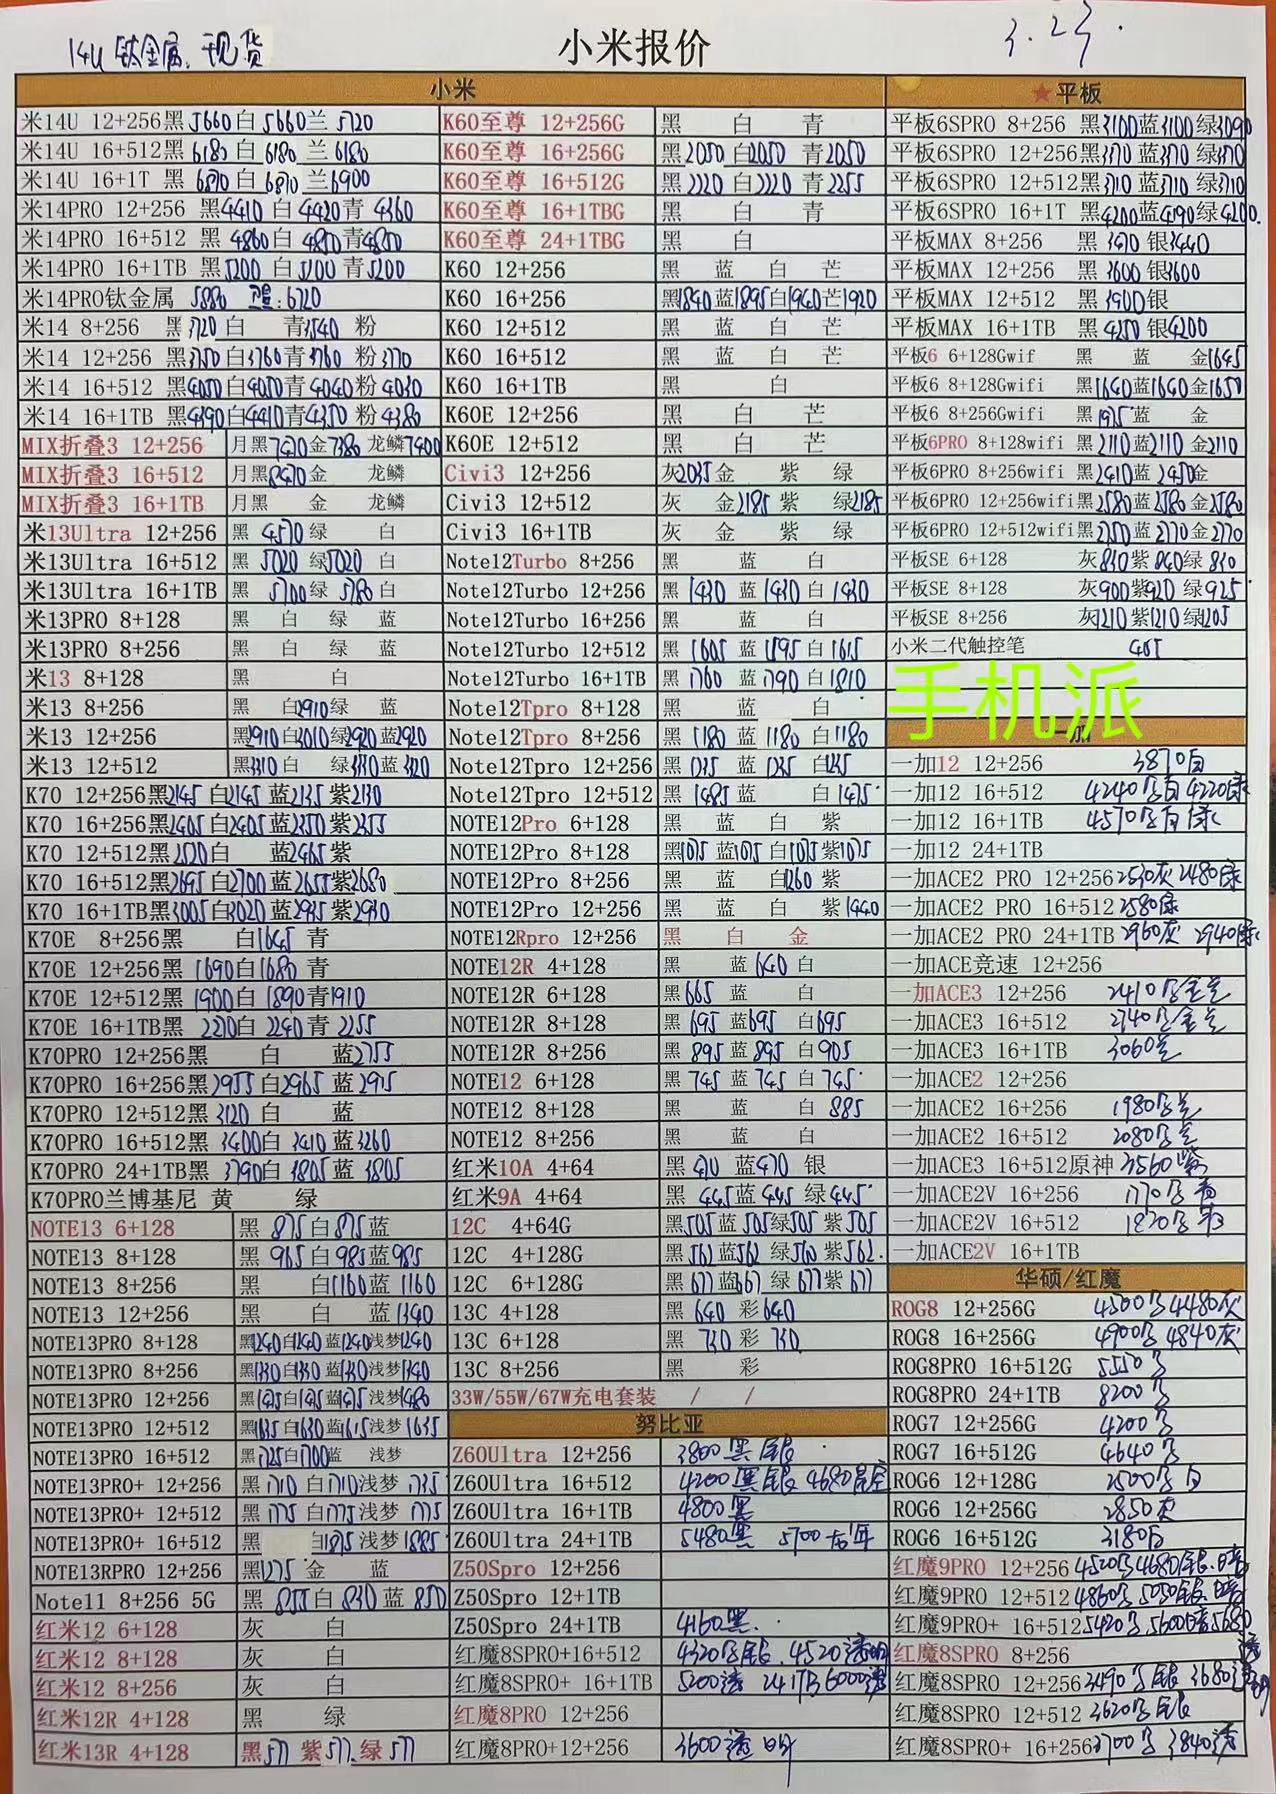 14U 钛金属、现货
小米报价
3.23.
小米
米14U 12+256黑5660白5660兰5720
米14U 16+512黑6180白6180兰6180
米14U 16+1T 黑6870白6870兰6900
米14PRO 12+256 黑4410白4420青4360
米14PRO 16+512 黑4860白4850青4850
米14PRO 16+1TB 黑5200白5200青5200
米14PRO钛金属 5880
米14 8+256 黑3720白 青3540粉
米14 12+256 黑3750白3760青3760粉3770
米14 16+512 黑4050白4050青4040粉4030
米14 16+1TB 黑4390白4410青4350粉4380
MIX折叠3 12+256 月黑7430金7380龙鳞7400
MIX折叠3 16+512 月黑8470金 龙鳞
MIX折叠3 16+1TB 月黑 金 龙鳞
米13Ultra 12+256 黑4570绿 白
米13Ultra 16+512 黑5020绿5020白
米13Ultra 16+1TB 黑5700绿5780白
米13PRO 8+128 黑 白 绿 蓝
米13PRO 8+256 黑 白 绿 蓝
米13 8+128 黑 白
米13 8+256 黑 白2910绿 蓝
米13 12+256 黑2910白3010绿2920蓝2920
米13 12+512 黑3310白 绿3330蓝3320
K70 12+256黑2145白2145蓝2135紫2130
K70 16+256黑2405白2405蓝2350紫2355
K70 12+512黑2520白 蓝2465紫
K70 16+512黑2695白2700蓝2655紫2680
K70 16+1TB黑3005白3020蓝2935紫2930
K70E 8+256黑 白1645青
K70E 12+256黑1690白1680青
K70E 12+512黑1900白1890青1910
K70E 16+1TB黑2270白2240青2255
K70PRO 12+256黑 白 蓝2755
K70PRO 16+256黑2955白2965蓝2915
K70PRO 12+512黑3120白 蓝
K70PRO 16+512黑3400白3410蓝3260
K70PRO 24+1TB黑3790白3805蓝3805
K70PRO兰博基尼 黄 绿
NOTE13 6+128 黑875白875蓝
NOTE13 8+128 黑965白985蓝985
NOTE13 8+256 黑 白1160蓝1160
NOTE13 12+256 黑 白 蓝1340
NOTE13PRO 8+128 黑1240白1240蓝1240浅梦1240
NOTE13PRO 8+256 黑1330白1330蓝1330浅梦1340
NOTE13PRO 12+256 黑1475白1475蓝1475浅梦1480
NOTE13PRO 12+512 黑1635白1630蓝1615浅梦1635
NOTE13PRO 16+512 黑1725白1700蓝 浅梦
NOTE13PRO+ 12+256 黑1710白1710浅梦1735
NOTE13PRO+ 12+512 黑1775白1775浅梦1775
NOTE13PRO+ 16+512 黑 白1895浅梦1885
NOTE13RPRO 12+256 黑1275金 蓝
Note11 8+256 5G 黑855白830蓝850
红米12 6+128 灰 白
红米12 8+128 灰 白
红米12 8+256 灰 白
红米12R 4+128 黑 绿
红米13R 4+128 黑577紫577绿577
K60至尊 12+256G 黑 白 青
K60至尊 16+256G 黑2050白2050青2050
K60至尊 16+512G 黑2220白2220青2255
K60至尊 16+1TBG 黑 白 青
K60至尊 24+1TBG 黑 白
K60 12+256 黑 蓝 白 芒
K60 16+256 黑1840蓝1895白1940芒1920
K60 12+512 黑 蓝 白 芒
K60 16+512 黑 蓝 白 芒
K60 16+1TB 黑 白
K60E 12+256 黑 白 芒
K60E 12+512 黑 白 芒
Civi3 12+256 灰2035金 紫 绿
Civi3 12+512 灰 金2185紫 绿2185
Civi3 16+1TB 灰 金 紫 绿
Note12Turbo 8+256 黑 蓝 白
Note12Turbo 12+256 黑1430蓝1430白1430
Note12Turbo 16+256 黑 蓝 白
Note12Turbo 12+512 黑1605蓝1595白1615
Note12Turbo 16+1TB 黑1760蓝1790白1810
Note12Tpro 8+128 黑 蓝 白
Note12Tpro 8+256 黑1180蓝1180白1180
Note12Tpro 12+256 黑1235蓝1235白1245
Note12Tpro 12+512 黑1485蓝 白1475
NOTE12Pro 6+128 黑 蓝 白 紫
NOTE12Pro 8+128 黑1075蓝1075白1075紫1075
NOTE12Pro 8+256 黑 蓝 白1260紫
NOTE12Pro 12+256 黑 蓝 白 紫1440
NOTE12Rpro 12+256 黑 白 金
NOTE12R 4+128 黑 蓝640白
NOTE12R 6+128 黑665蓝 白
NOTE12R 8+128 黑695蓝695白695
NOTE12R 8+256 黑895蓝895白905
NOTE12 6+128 黑745蓝745白745
NOTE12 8+128 黑 蓝 白885
NOTE12 8+256 黑 蓝 白
红米10A 4+64 黑470蓝470银
红米9A 4+64 黑445蓝445绿445
12C 4+64G 黑505蓝505绿505紫505
12C 4+128G 黑562蓝562绿560紫562
12C 6+128G 黑677蓝667绿677紫677
13C 4+128 黑640彩640
13C 6+128 黑730彩730
13C 8+256 黑 彩
33W/55W/67W充电套装 / /
努比亚
Z60Ultra 12+256 3800黑银
Z60Ultra 16+512 4200黑银 4680星空
Z60Ultra 16+1TB 4800黑
Z60Ultra 24+1TB 5480黑 5700龙年
Z50Spro 12+256
Z50Spro 12+1TB
Z50Spro 24+1TB 4160黑
红魔8SPRO+16+512 4320黑银.4520透明
红魔8SPRO+ 16+1TB 5200透 24+1TB6000透
红魔8PRO 12+256
红魔8PRO+12+256 3600透明
★平板
平板6SPRO 8+256 黑3100蓝3100绿3090
平板6SPRO 12+256黑3370蓝3370绿3370
平板6SPRO 12+512黑3710蓝3710绿3710
平板6SPRO 16+1T 黑4200蓝4190绿4200
平板MAX 8+256 黑3470银3440
平板MAX 12+256 黑3600银3600
平板MAX 12+512 黑3900银
平板MAX 16+1TB 黑4250银4200
平板6 6+128Gwif 黑 蓝 金1645
平板6 8+128Gwifi 黑1640蓝1640金1650
平板6 8+256Gwifi 黑1975蓝 金
平板6PRO 8+128wifi 黑2110蓝2110金2110
平板6PRO 8+256wifi 黑2410蓝2450金
平板6PRO 12+256wifi黑2580蓝2580金2580
平板6PRO 12+512wifi黑2750蓝2770金2770
平板SE 6+128 灰830紫840绿830
平板SE 8+128 灰900紫920绿925
平板SE 8+256 灰1210紫1210绿1205
小米二代触控笔 405
手机派
一加
一加12 12+256 3870白
一加12 16+512 4240黑白4220绿
一加12 16+1TB 4570黑白绿
一加12 24+1TB
一加ACE2 PRO 12+256 2530灰2480绿
一加ACE2 PRO 16+512 2580绿
一加ACE2 PRO 24+1TB 2960灰 2940绿
一加ACE竞速 12+256
一加ACE3 12+256 2410黑金兰
一加ACE3 16+512 2740黑金兰
一加ACE3 16+1TB 3060兰
一加ACE2 12+256
一加ACE2 16+256 1980黑兰
一加ACE2 16+512 2080黑兰
一加ACE3 16+512原神 3560紫
一加ACE2V 16+256 1770黑青
一加ACE2V 16+512 1820黑青
一加ACE2V 16+1TB
华硕/红魔
ROG8 12+256G 4500黑4480灰
ROG8 16+256G 4900黑4840灰
ROG8PRO 16+512G 5550黑
ROG8PRO 24+1TB 8200黑
ROG7 12+256G 4200黑
ROG7 16+512G 4640黑
ROG6 12+128G 2500黑白
ROG6 12+256G 2850灰
ROG6 16+512G 3180白
红魔9PRO 12+256 4520黑4680银.暗
红魔9PRO 12+512 4860黑5050银.暗
红魔9PRO+ 16+512 5420黑5600暗5680透明
红魔8SPRO 8+256
红魔8SPRO 12+256 3490黑银3680透
红魔8SPRO 12+512 3620黑银
红魔8SPRO+ 16+256 3700黑3840透